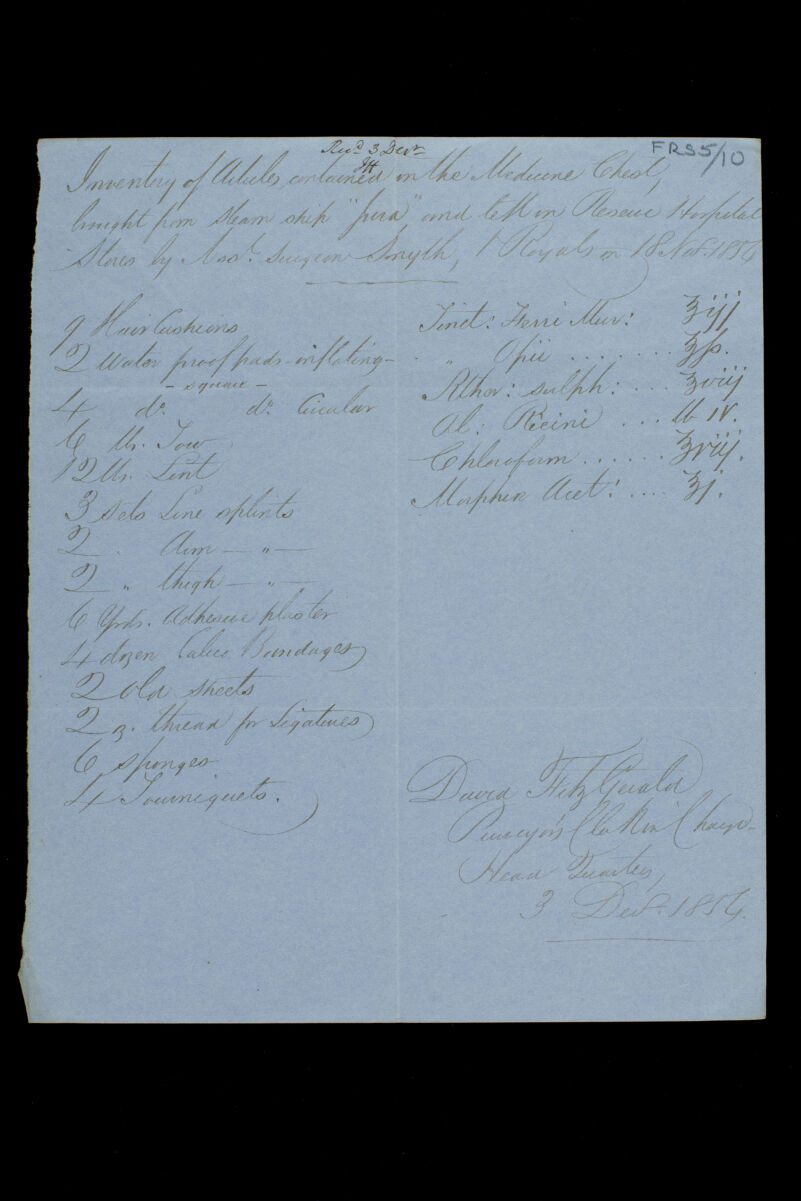 Recd. 3 Decr.
FRS5/10
Inventory of Articles contained in the Medicine Chest,
brought from steam ship "Jura", and left in Reserve Hospital
Stores by Asst. Surgeon Smyth, 1 Royals on 18 Nov. 1854
9 Hair Cushions
2 Water proof pads - inflating -
- square -
4 do. do. Circular
6 lbs. Tow
12 lbs. Lint
3 sets Line splints
2 . Arm — " —
2 " thigh — " —
6 Yrds. Adhesive plaster
4 dozen Calico Bandages
2 old sheets
2 oz. thread for Ligatures
6 sponges
4 Tourniquets.
Tinct: Ferri Mur: ℥iij
" Opii ........ ℥ſs.
Æther: sulph: ... ℥viij
Ol: Ricini ... lb iv.
Chloroform ...... ℥viij.
Morphiæ Acet: .... ʒj.
David FitzGerald
Purveyor's Clk in Charge
Head Quarters,
3 Decr. 1854.